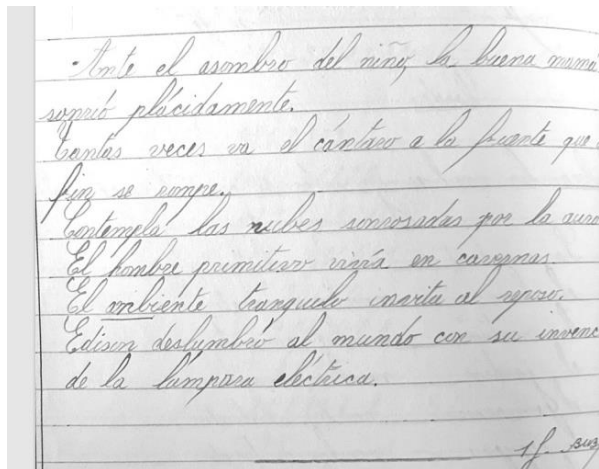 Ante el asombro del niño, la buena mamá
sonrió plácidamente.
Tantas veces va el cántaro a la fuente que
fin se rompe.
Contempla las nubes sonrosadas por la auro
El hombre primitivo vivía en cavernas
El ambiente tranquilo invita al reposo.
Edison deslumbró al mundo con su invenc
de la lámpara eléctrica.